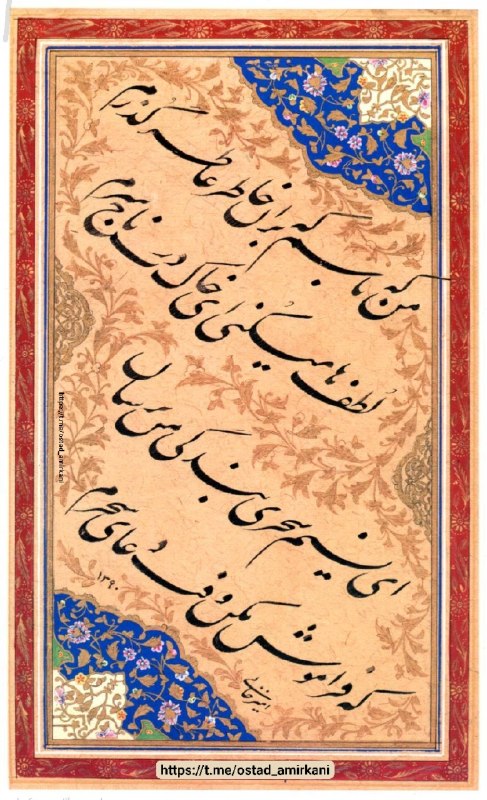 من که باشم که بر آن خاطر عاطر گذرم
لطف‌ها میکنی ای خاک درت تاج سرم
ای نسیم سحری بندگی من برسان
که فراموش مکن وقت دعای سحرم
۱۳۹۰
امیرخانی
https://t.me/ostad_amirkani
https://t.me/ostad_amirkani